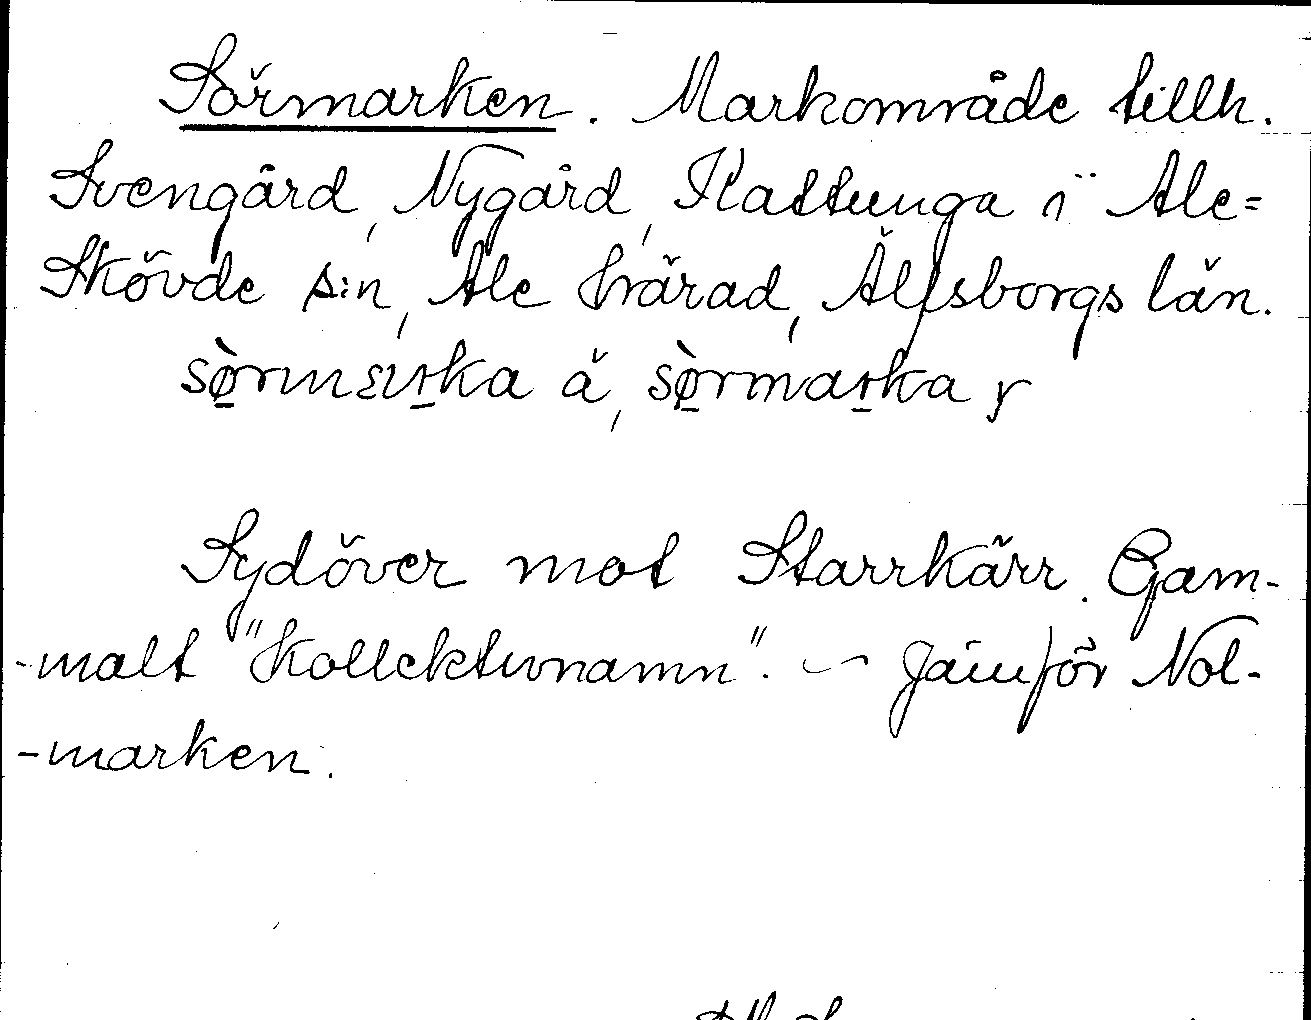 Sörmarken. Markområde tillh.
Svengård, Nygård, Kattunga i Ale=
Skövde s:n, Ale härad, Älfsborgs län.
sø̀rmaɾka å, sø̀rmaɾka y
Sydöver mot Starrkärr. Gam-
-malt "kollektivnamn". — Jämför Nol-
-marken.